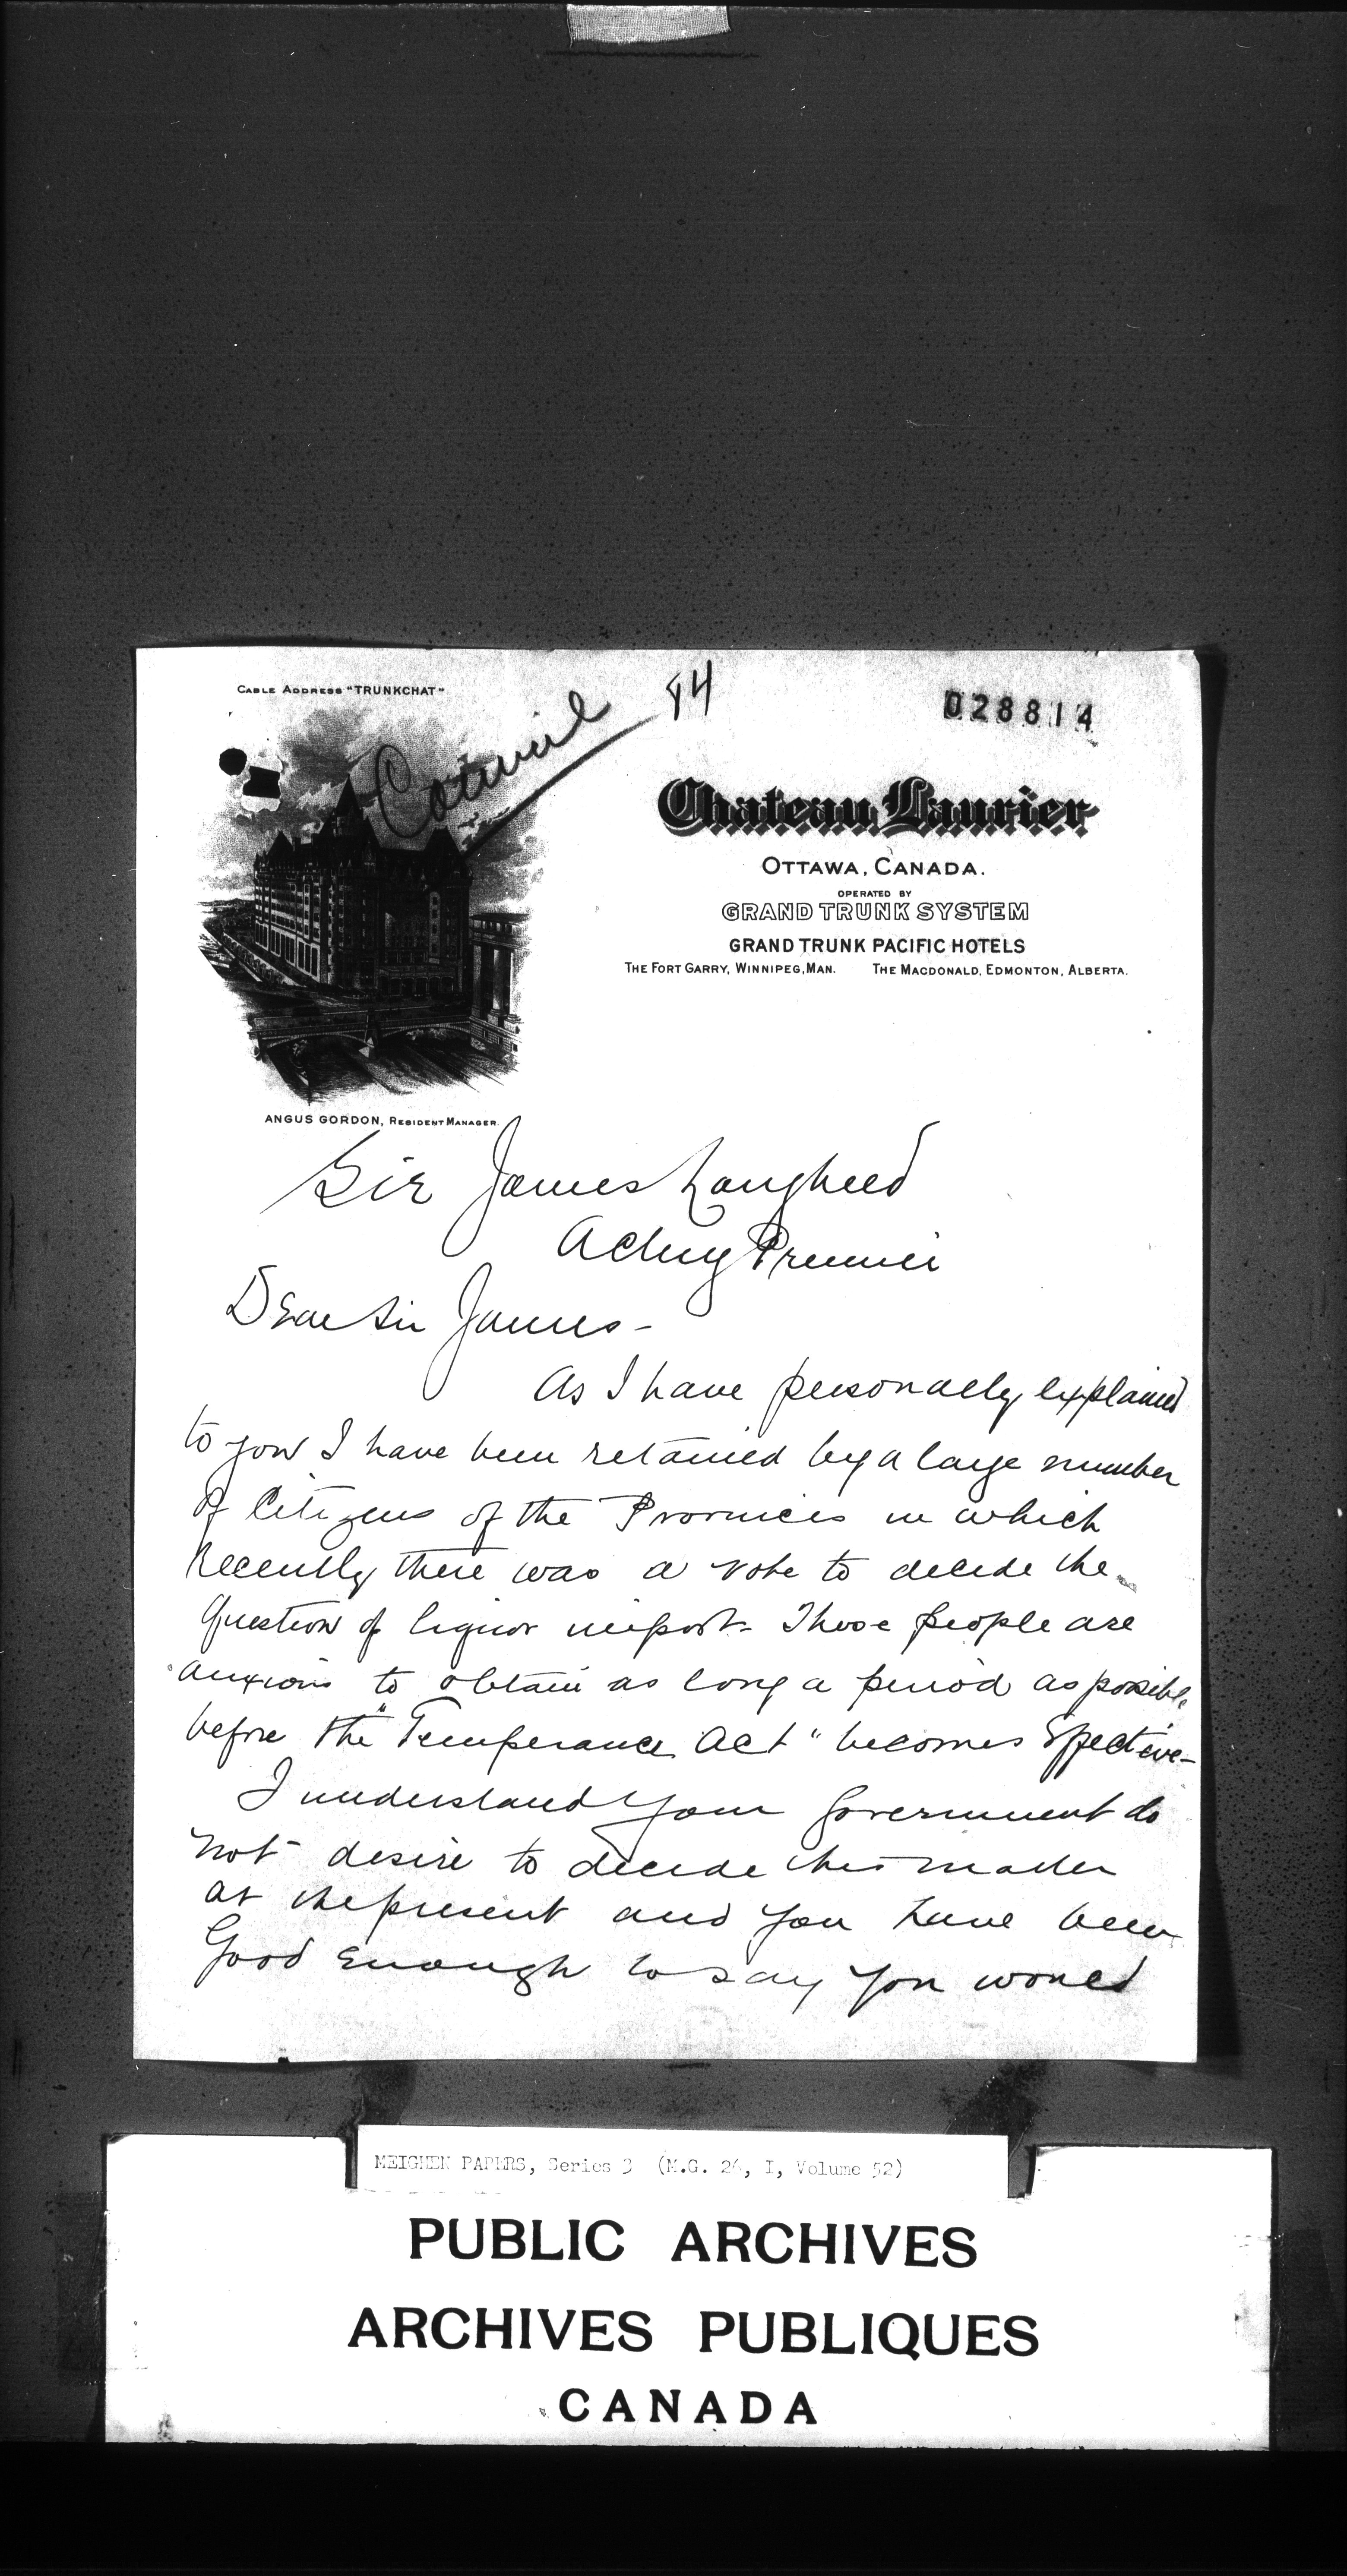 CABLE ADDRESS "TRUNKCHAT"
84
028814
Council
Chateau Laurier
OTTAWA, CANADA.
OPERATED BY
GRAND TRUNK SYSTEM
GRAND TRUNK PACIFIC HOTELS
THE FORT GARRY, WINNIPEG, MAN. THE MACDONALD, EDMONTON, ALBERTA.
ANGUS GORDON, RESIDENT MANAGER.
Sir James Lougheed
Acting Premier
Dear Sir James-
As I have personally explained
to you I have been retained by a large number
of Citizens of the Provinces in which
Recently there was a vote to decide the
Question of liquor import. Those people are
anxious to obtain as long a period as possible
before the "Temperance Act" becomes Effective-
I understand your Government do
not desire to decide this matter
at the present and you have been
Good Enough to say you would
MEIGHEN PAPERS, Series 3 (M.G. 26, I, Volume 52)
PUBLIC ARCHIVES
ARCHIVES PUBLIQUES
CANADA